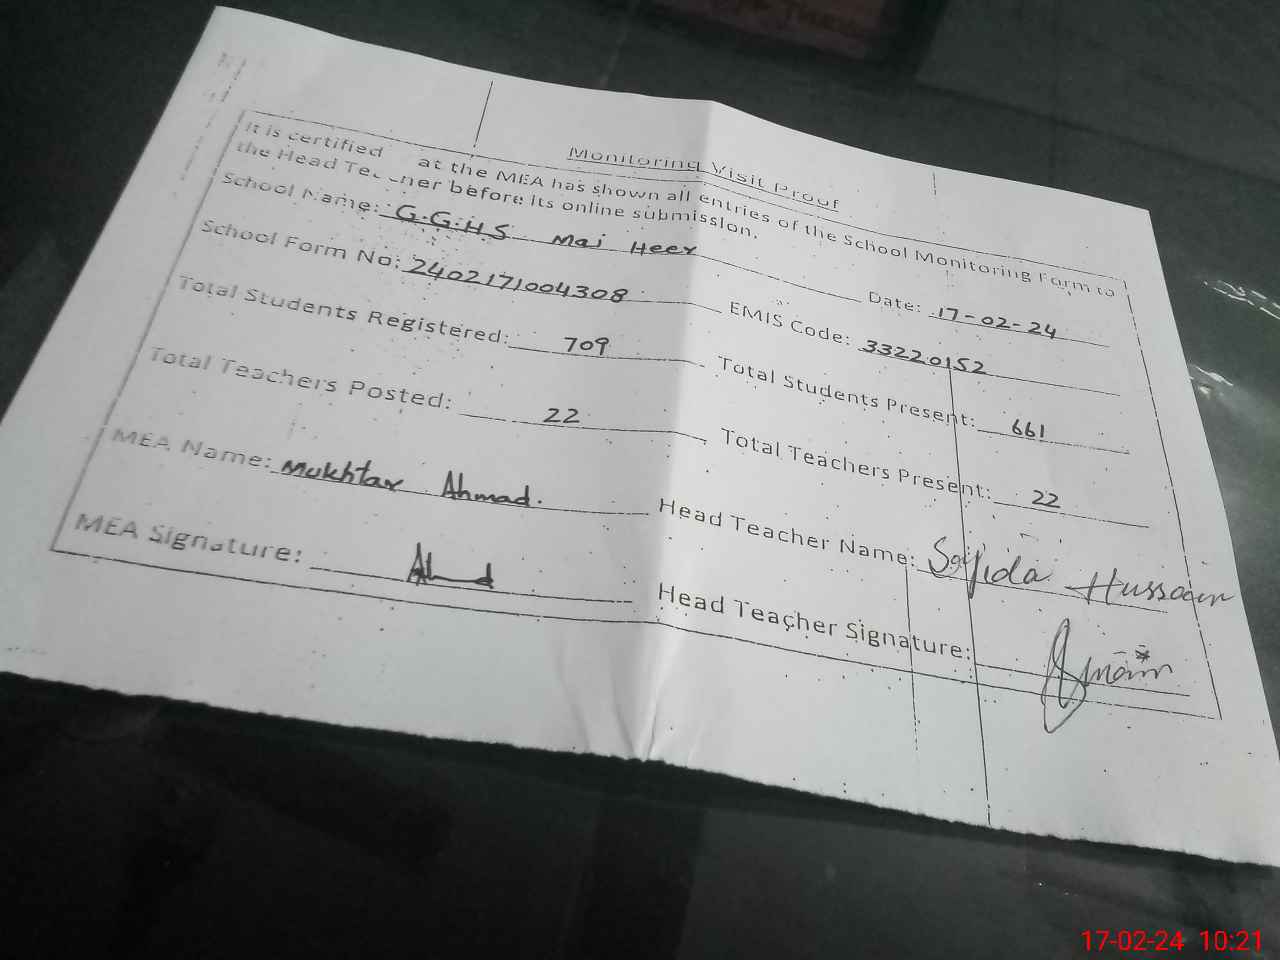 Monitoring Visit Proof
It is certified at the MEA has shown all entries of the School Monitoring Form to
the Head Teacher before its online submission.
School Name: G.G.H.S Mai Heer Date: 17-02-24
School Form No: 2402171004308 EMIS Code: 33220152
Total Students Registered: 709 Total Students Present: 661
Total Teachers Posted: 22 Total Teachers Present: 22
MEA Name: Mukhtar Ahmad. Head Teacher Name: Sajida Hussain
MEA Signature: Ahmd Head Teacher Signature:
17-02-24 10:21